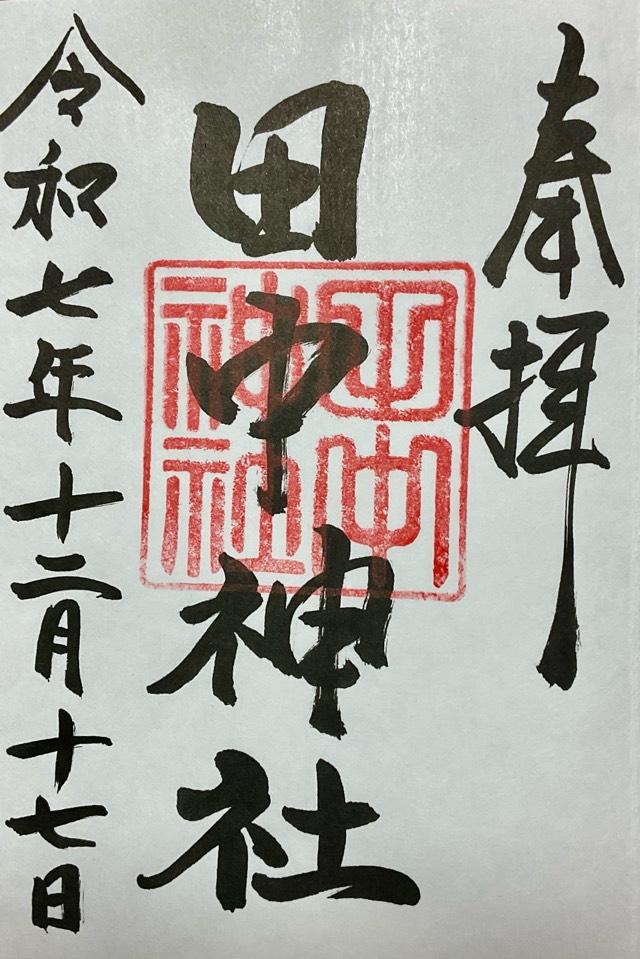 奉拝
田中神社
田中
神社
令和七年十二月十七日